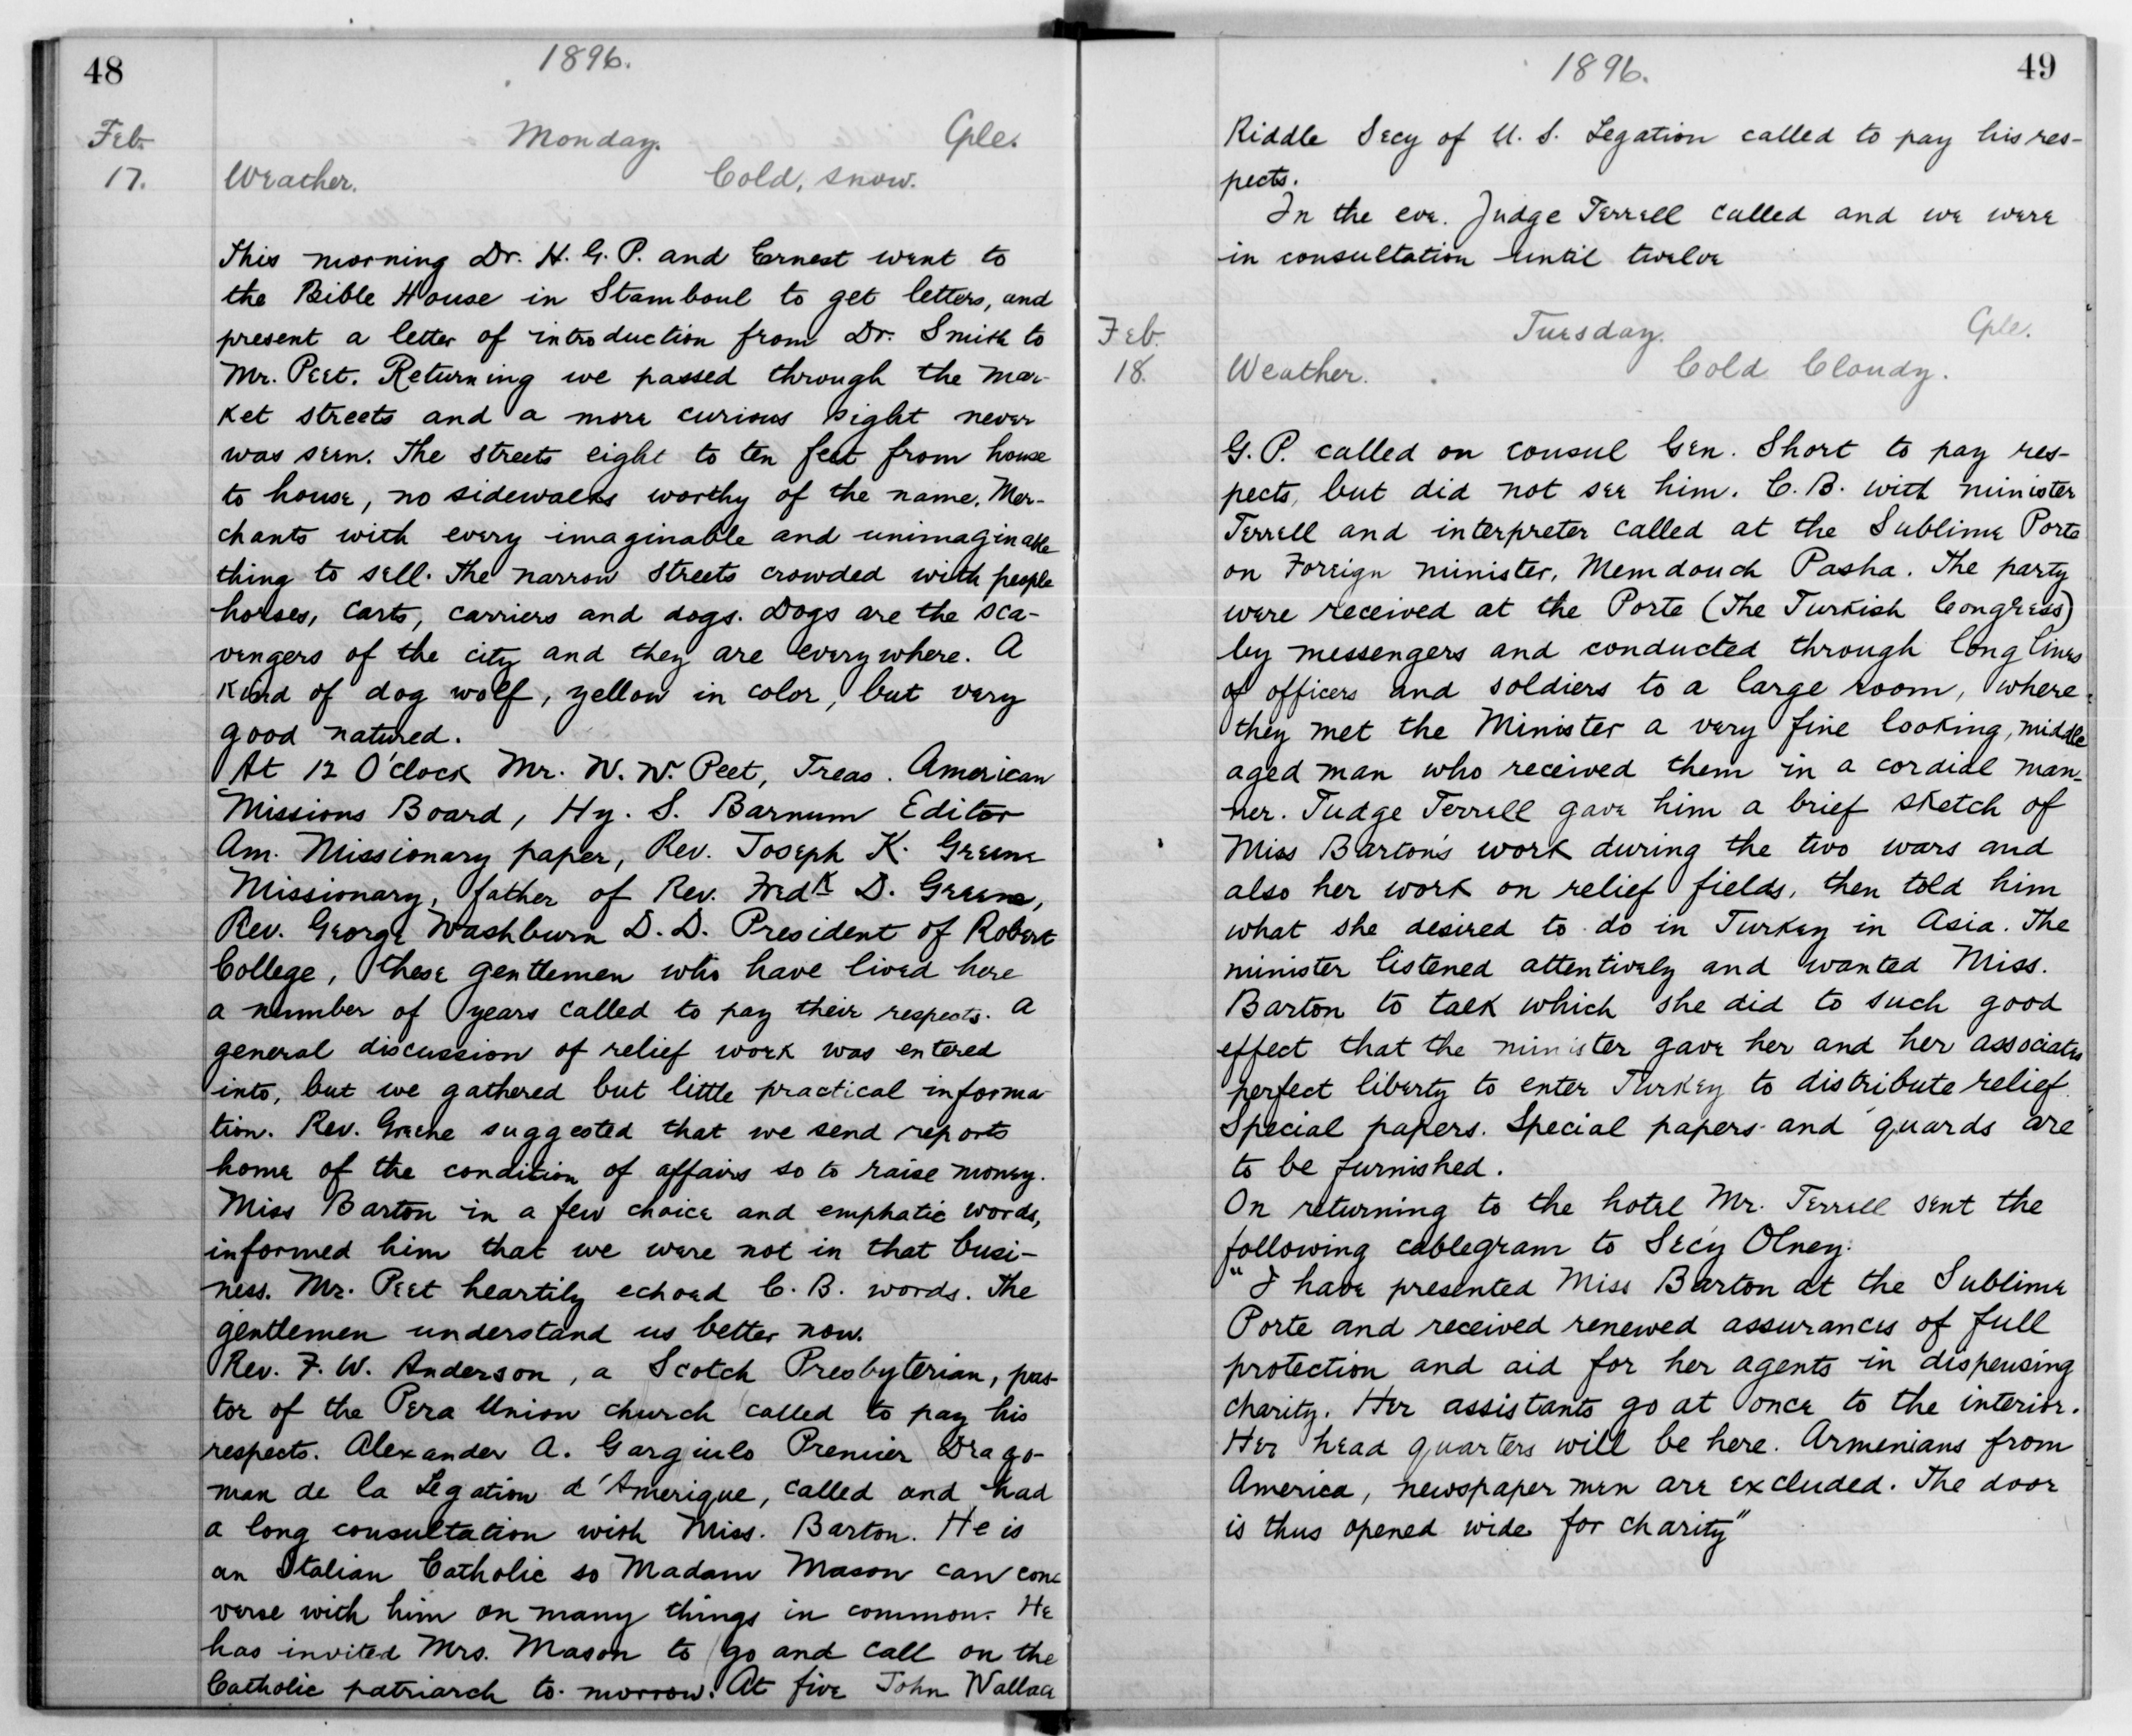 48
1896.
Feb. Monday. Cple.
17. Weather. Cold, snow.
This morning Dr. H. G. P. and Ernest went to
the Bible House in Stamboul to get letters, and
present a letter of introduction from Dr. Smith to
Mr. Peet. Returning we passed through the mar-
ket streets and a more curious sight never
was seen. The streets eight to ten feet from house
to house, no sidewalks worthy of the name. Mer-
chants with every imaginable and unimaginable
thing to sell. The narrow streets crowded with people
horses, carts, carriers and dogs. Dogs are the sca-
vengers of the city and they are everywhere. A
kind of dog wolf, yellow in color, but very
good natured.
At 12 O'clock Mr. W. W. Peet, Treas. American
Missions Board, Hy. S. Barnum Editor
Am. Missionary paper, Rev. Joseph K. Greene
Missionary, father of Rev. Fredk D. Greene,
Rev. George Washburn D. D. President of Robert
College, these gentlemen who have lived here
a number of years called to pay their respects. A
general discussion of relief work was entered
into, but we gathered but little practical informa-
tion. Rev. Greene suggested that we send reports
home of the condition of affairs so to raise money.
Miss Barton in a few choice and emphatic words,
informed him that we were not in that busi-
ness. Mr. Peet heartily echoed C. B. words. The
gentlemen understand us better now.
Rev. F. W. Anderson, a Scotch Presbyterian, pas-
tor of the Pera Union church called to pay his
respects. Alexander A. Gargiulo Premier Drago-
man de la Legation d'Amerique, called and had
a long consultation with Miss. Barton. He is
an Italian Catholic so Madam Mason can con-
verse with him on many things in common. He
has invited Mrs. Mason to go and call on the
Catholic patriarch to-morrow. At five John Wallace
49
1896.
Riddle Secy of U. S. Legation called to pay his res-
pects.
In the eve. Judge Terrell called and we were
in consultation until twelve
Feb. Tuesday. Cple.
18. Weather. Cold Cloudy.
G. P. called on consul Gen. Short to pay res-
pects, but did not see him. C. B. with minister
Terrell and interpreter called at the Sublime Porte
on Foreign minister, Memdouch Pasha. The party
were received at the Porte (The Turkish Congress)
by messengers and conducted through long lines
of officers and soldiers to a large room, where
they met the Minister a very fine looking, middle
aged man who received them in a cordial man-
ner. Judge Terrell gave him a brief sketch of
Miss Barton's work during the two wars and
also her work on relief fields, then told him
what she desired to do in Turkey in Asia. The
minister listened attentively and wanted Miss.
Barton to talk which she did to such good
effect that the minister gave her and her associates
perfect liberty to enter Turkey to distribute relief.
Special papers. Special papers and guards are
to be furnished.
On returning to the hotel Mr. Terrell sent the
following cablegram to Sec'y Olney:
"I have presented Miss Barton at the Sublime
Porte and received renewed assurances of full
protection and aid for her agents in dispensing
charity. Her assistants go at once to the interior.
Her head quarters will be here. Armenians from
America, newspaper men are excluded. The door
is thus opened wide for charity"